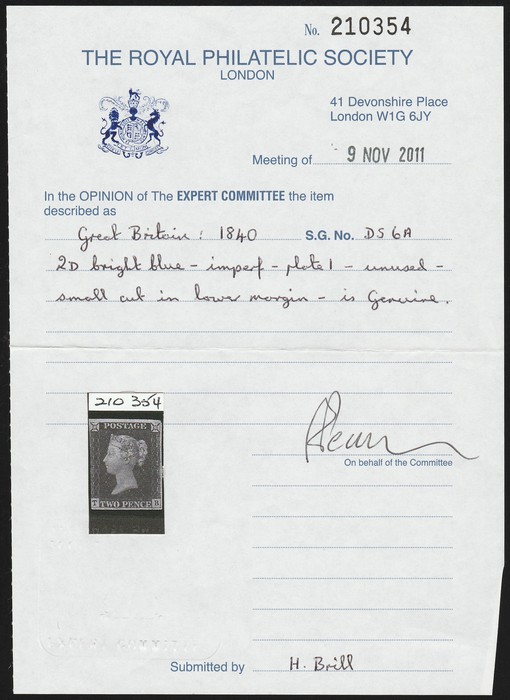 No. 210354
THE ROYAL PHILATELIC SOCIETY
LONDON
41 Devonshire Place
London W1G 6JY
Meeting of 9 NOV 2011
In the OPINION of The EXPERT COMMITTEE the item
described as
Great Britain: 1840 S.G. No. DS6A
2D bright blue - imperf - plate 1 - unused -
small cut in lower margin - is Genuine.
210 354
POSTAGE
T TWO PENCE B
On behalf of the Committee
Submitted by H. Brill